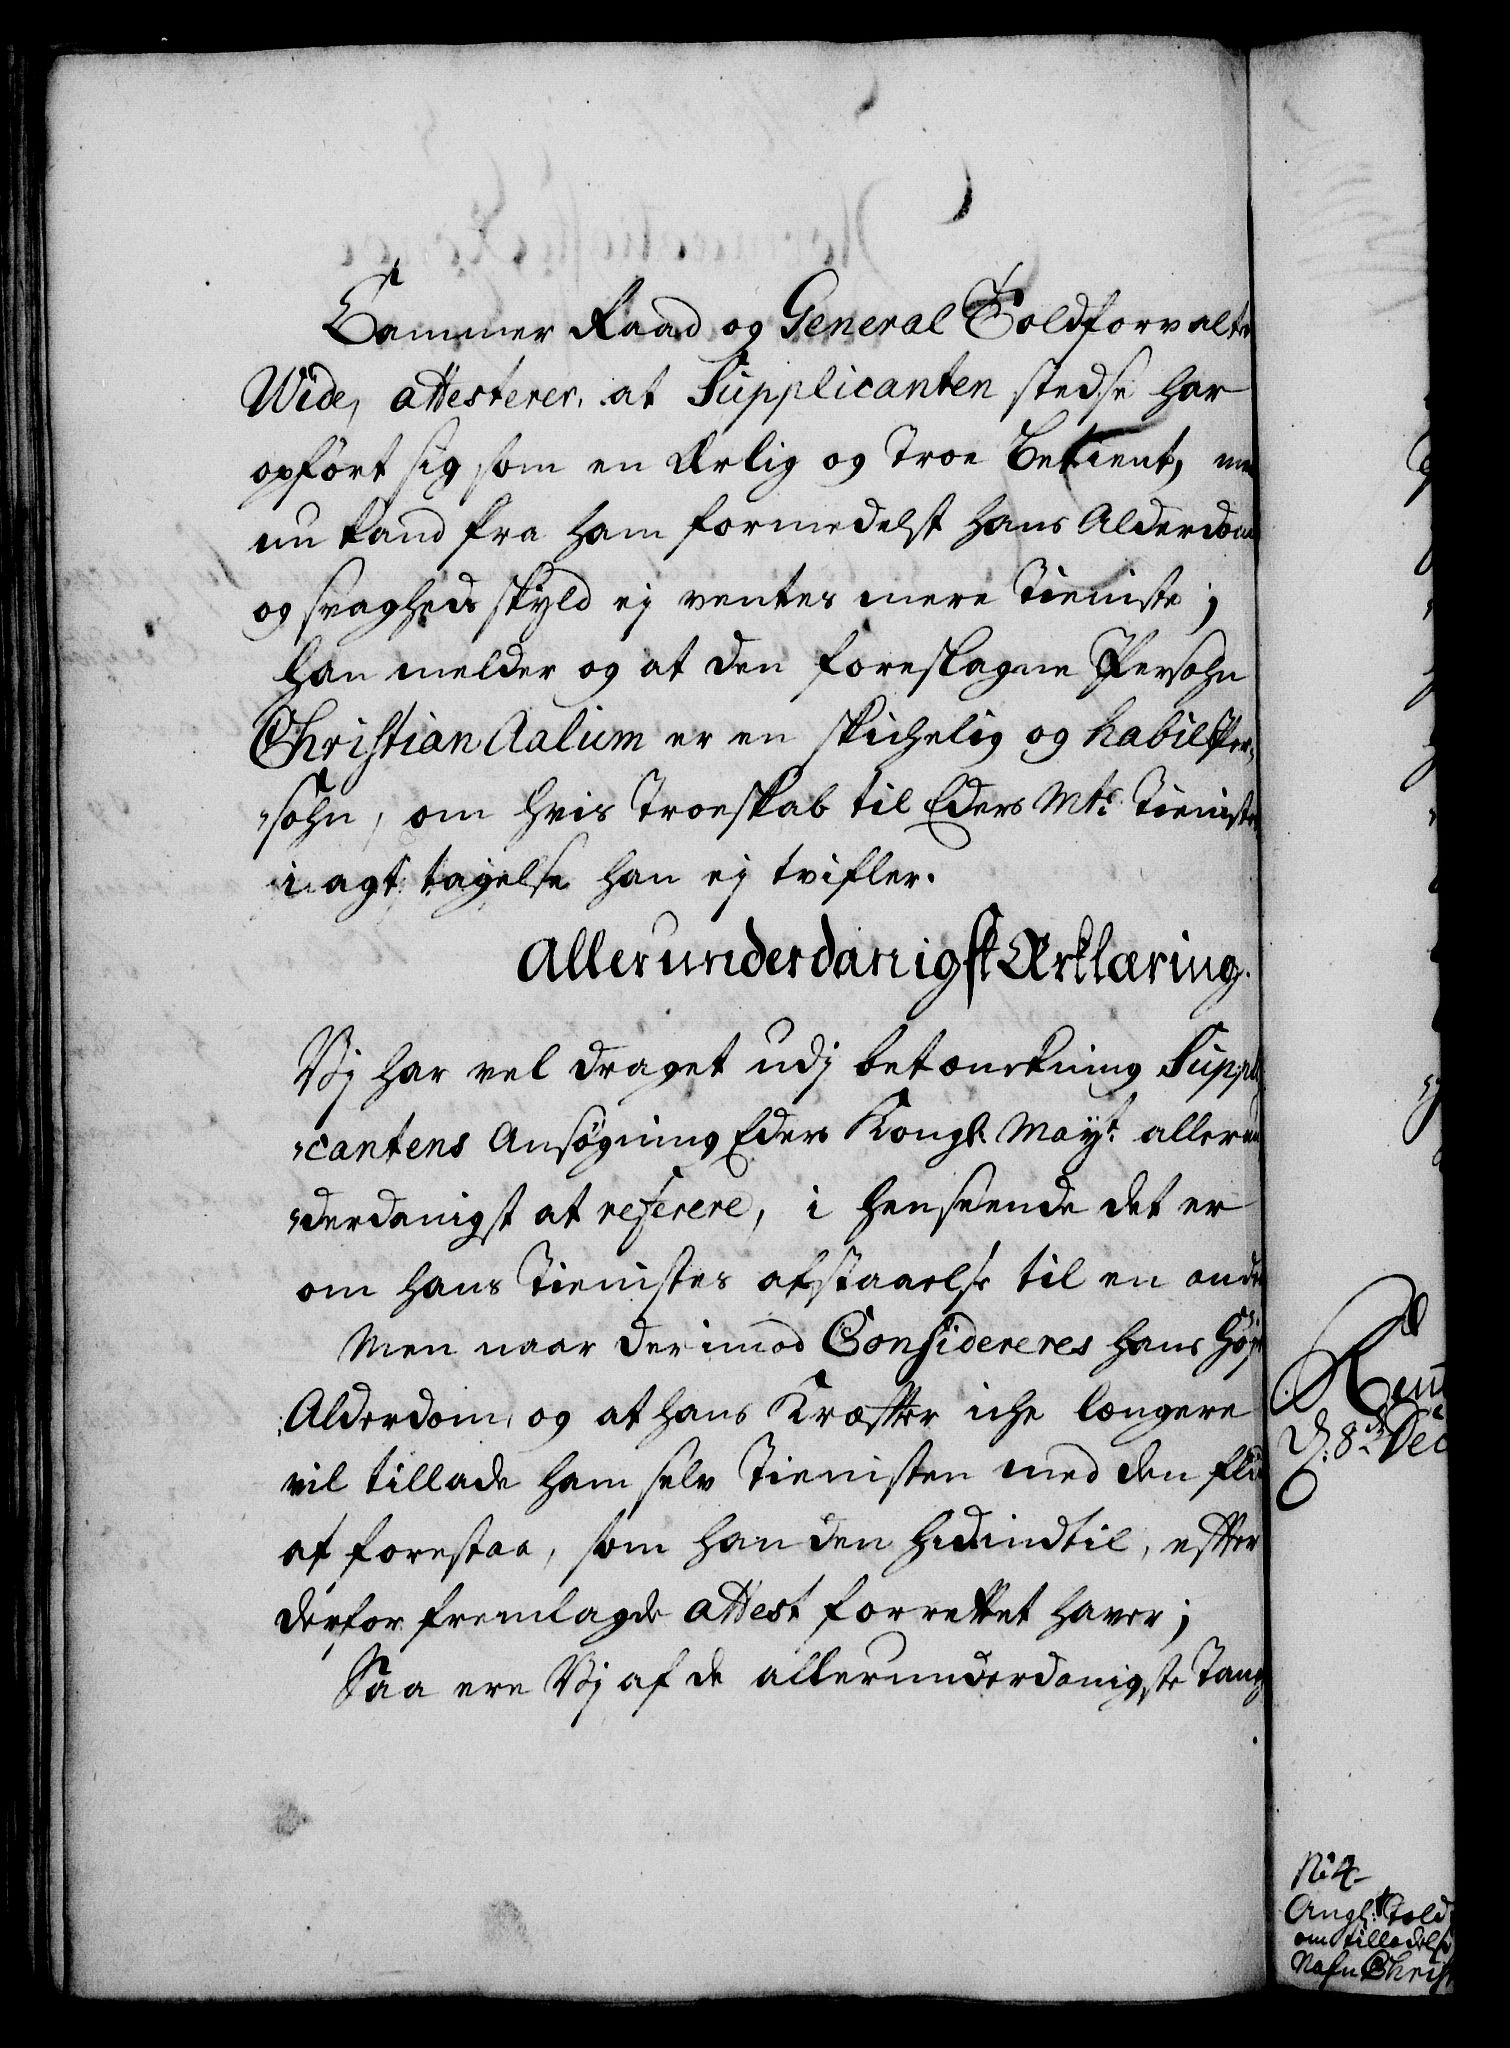 Cammer Raad og General Toldforvalte
Wide, attesterer, at Supplicanten stedse har
opført sig som en ærlig og troe Betient, men
nu kand fra ham formedelst hans Alderdom
og svagheds skyld ej ventes mere Tieniste;
han melder og at den foreslagne Persohn
Christian Aalum er en skichelig og habil Per-
„sohn, om hvis Troeskab til Eders Mts. Tienistes
i agt tagelse han ej tvifler.
Allerunderdanigst Ærklæring.
Vj har vel draget udj betænckning Suppli
„cantens Ansøgning Eders Kongl. Mayt. allerun
„derdanigst at referere, i henseende det er
om hans Tienistes afstaaelse til en anden
Men naar derimod Considereres hans høje
Alderdom, og at hans Kræffter iche længere
vil tillade ham selv Tienisten med den flid
at forestaa, som han den hidindtil, effter
derfor fremlagde attest forrettet haver;
Saa ere Vj af de allerunderdanigste Tanc
d. 8de Dec
No 4
Angl: Told
om tilladelse
Nafn Christ